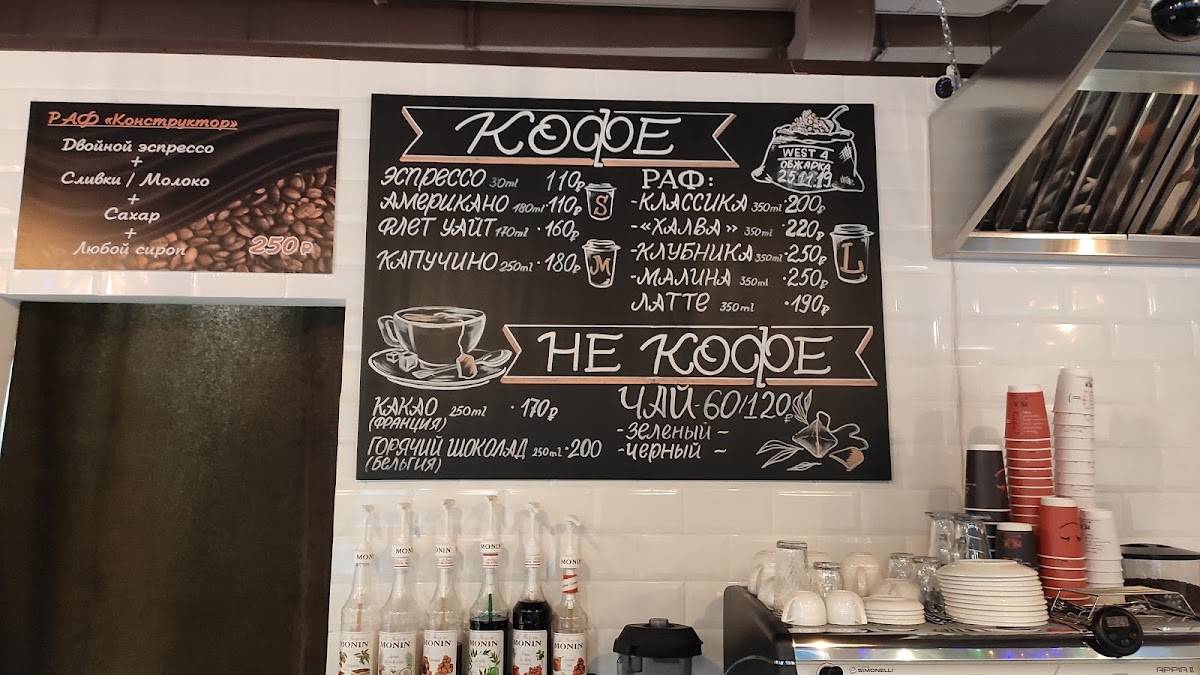 РАФ «Конструктор»
Двойной эспрессо
+
Сливки / Молоко
+
Сахар
+
Любой сироп 250₽
КОФЕ
ЭСПРЕССО 30ml 110₽
АМЕРИКАНО 180ml ·110₽
ФЛЕТ УАЙТ 170ml ·160₽
КАПУЧИНО 250ml ·180₽
S
M
РАФ:
-КЛАССИКА 350ml ·200₽
-«ХАЛВА» 350ml ·220₽
-КЛУБНИКА 350ml ·250₽
-МАЛИНА 350ml ·250₽
ЛАТТЕ 350ml ·190₽
L
WEST 4
ОБЖАРКА
25.11.19
НЕ КОФЕ
КАКАО 250ml ·170₽
(ФРАНЦИЯ)
ГОРЯЧИЙ ШОКОЛАД 250ml ·200
(БЕЛЬГИЯ)
ЧАЙ-60/120₽
-ЗЕЛЕНЫЙ ~
-ЧЕРНЫЙ ~
MONIN
MONIN
MONIN
MONIN
MONIN
MONIN
MONIN
MONIN
MONIN
MONIN
SIMONELLI
APPIA II